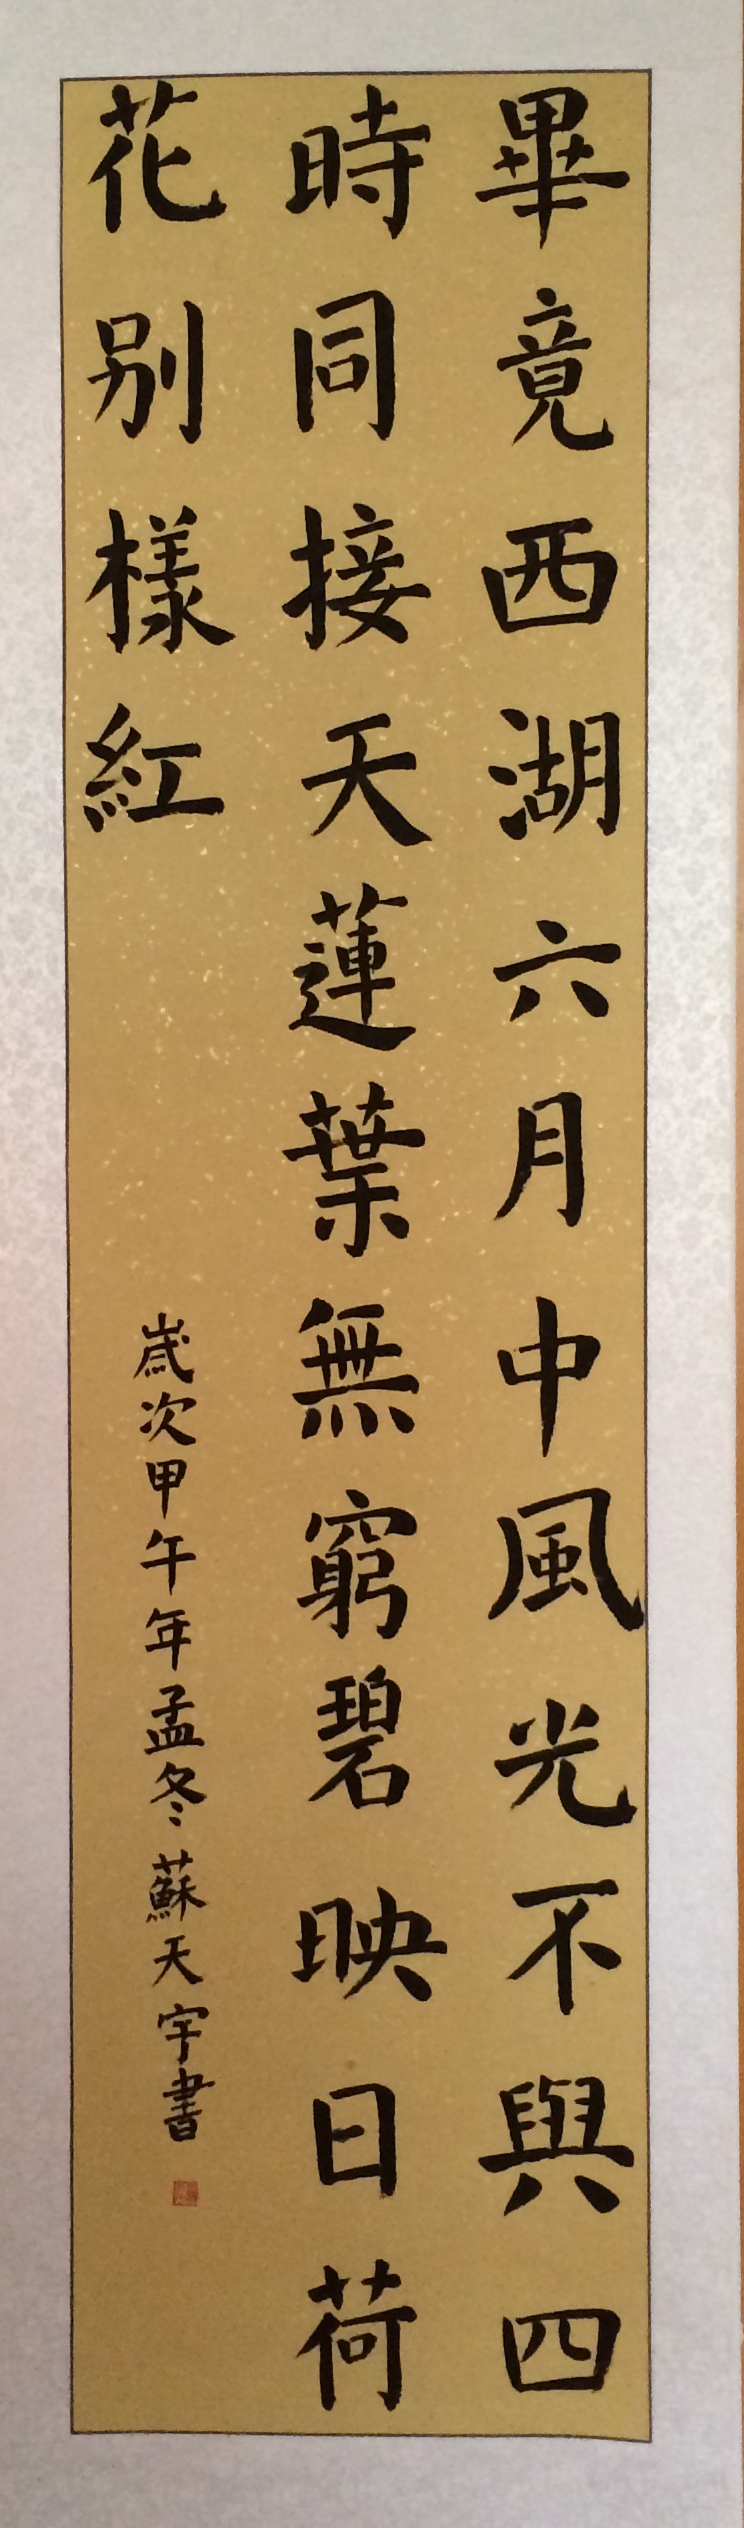 畢竟西湖六月中風光不與四
時同接天蓮葉無窮碧映日荷
花別樣紅
歲次甲午年孟冬蘇天宇書